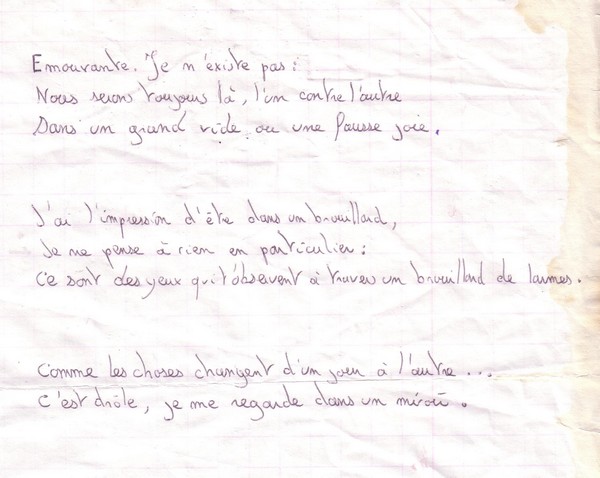 Emouvante. Je n'existe pas :
Nous serons toujours là, l'un contre l'autre
Dans un grand vide ou une fausse joie.
J'ai l'impression d'être dans un brouillard,
Je ne pense à rien en particulier :
Ce sont des yeux qui t'observent à travers un brouillard de larmes.
Comme les choses changent d'un jour à l'autre...
C'est drôle, je me regarde dans un miroir.